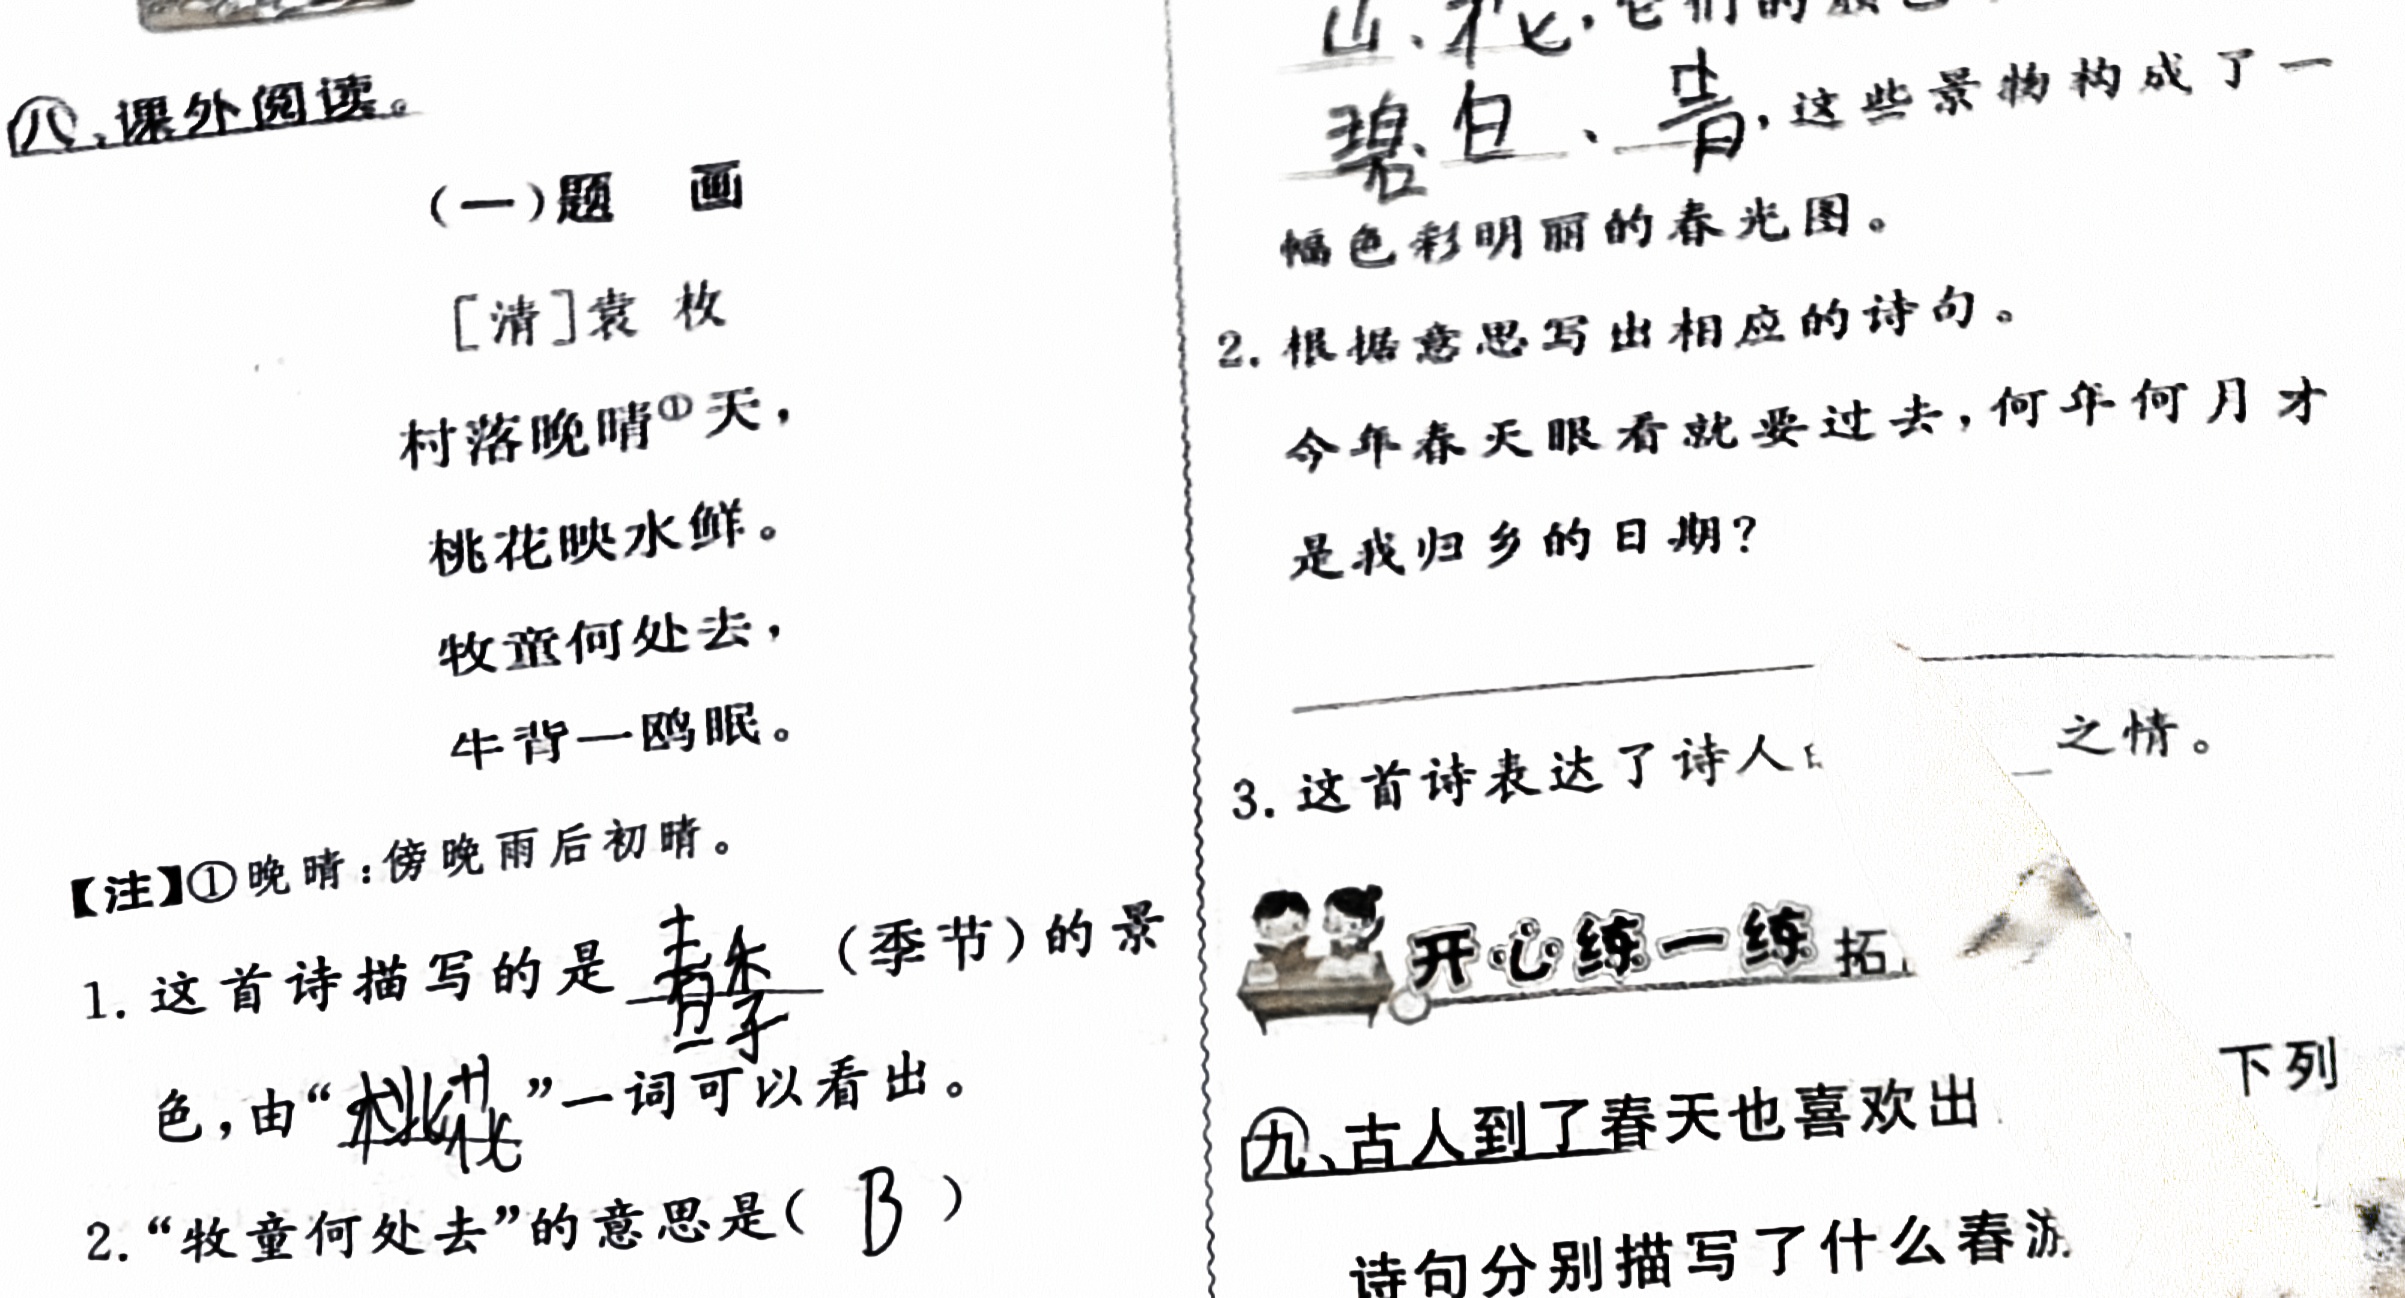 八、课外阅读。
(一)题 画
[清]袁 枚
村落晚晴①天,
桃花映水鲜。
牧童何处去,
牛背一鸥眠。
【注】①晚晴:傍晚雨后初晴。
1. 这首诗描写的是 春季 (季节)的景
色,由“桃花”一词可以看出。
2.“牧童何处去”的意思是( B )
山、花,它们的颜色
碧、白、青,这些景物构成了一
幅色彩明丽的春光图。
2. 根据意思写出相应的诗句。
今年春天眼看就要过去,何年何月才
是我归乡的日期?
3. 这首诗表达了诗人 之情。
开心练一练 拓
九、古人到了春天也喜欢出 下列
诗句分别描写了什么春游